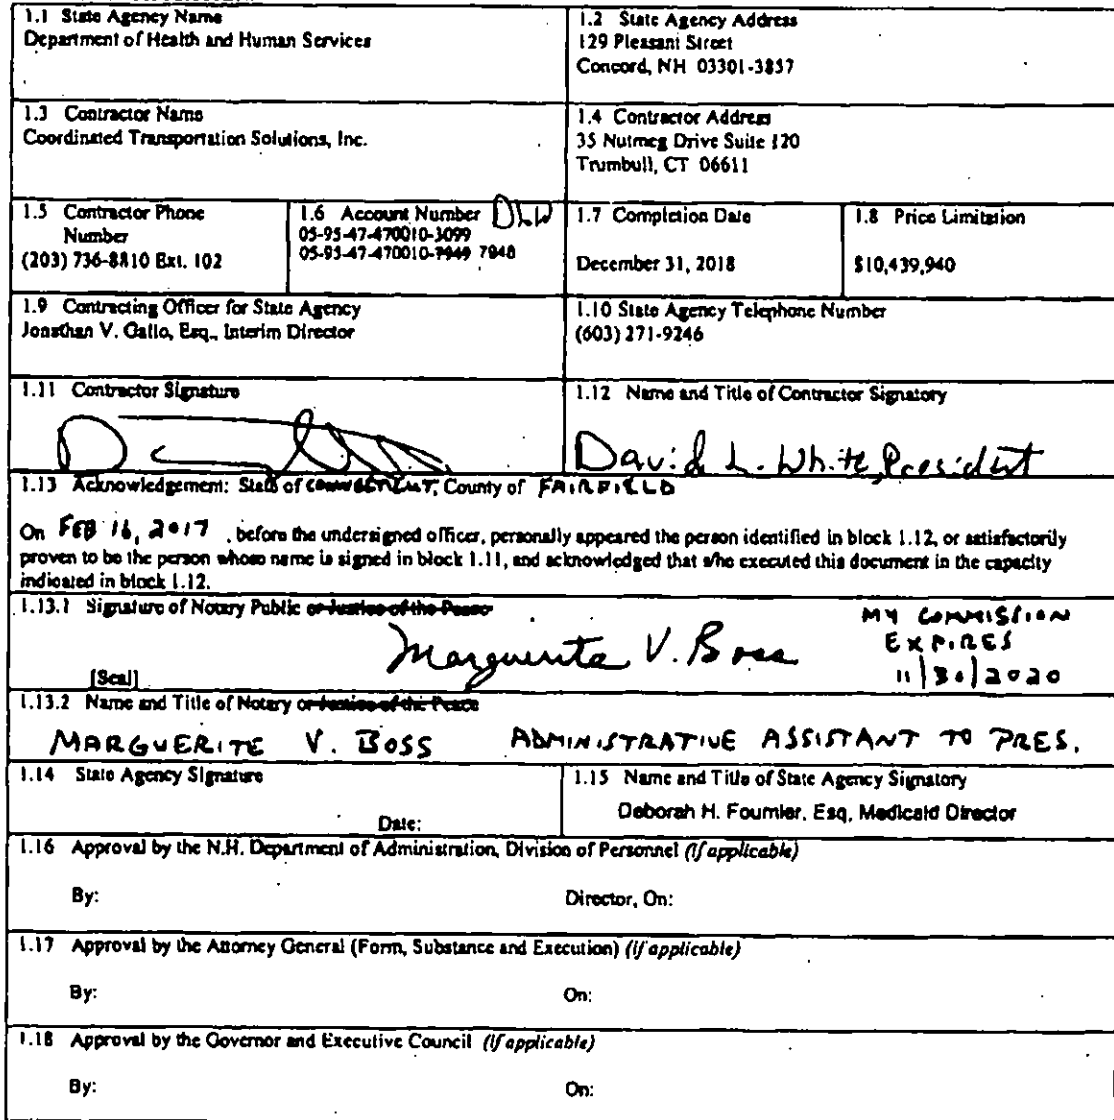 1.1 State Agency Name
Department of Health and Human Services
1.2 State Agency Address
129 Pleasant Street
Concord, NH 03301-3857
1.3 Contractor Name
Coordinated Transportation Solutions, Inc.
1.4 Contractor Address
35 Nutmeg Drive Suite 120
Trumbull, CT 06611
1.5 Contractor Phone
Number
(203) 736-8810 Ext. 102
1.6 Account Number DLW
05-95-47-470010-3099
05-95-47-470010-7949 7948
1.7 Completion Date
December 31, 2018
1.8 Price Limitation
$10,439,940
1.9 Contracting Officer for State Agency
Jonathan V. Gallo, Esq., Interim Director
1.10 State Agency Telephone Number
(603) 271-9246
1.11 Contractor Signature
1.12 Name and Title of Contractor Signatory
David L. White, President
1.13 Acknowledgement: State of CONNECTICUT, County of FAIRFIELD
On FEB 16, 2017 , before the undersigned officer, personally appeared the person identified in block 1.12, or satisfactorily
proven to be the person whose name is signed in block 1.11, and acknowledged that s/he executed this document in the capacity
indicated in block 1.12.
1.13.1 Signature of Notary Public or Justice of the Peace
Marguerite V. Boss
MY COMMISSION
EXPIRES
11/30/2020
[Seal]
1.13.2 Name and Title of Notary or Justice of the Peace
MARGUERITE V. BOSS ADMINISTRATIVE ASSISTANT TO PRES.
1.14 State Agency Signature
Date:
1.15 Name and Title of State Agency Signatory
Deborah H. Fournier, Esq, Medicaid Director
1.16 Approval by the N.H. Department of Administration, Division of Personnel (if applicable)
By: Director, On:
1.17 Approval by the Attorney General (Form, Substance and Execution) (if applicable)
By: On:
1.18 Approval by the Governor and Executive Council (if applicable)
By: On: